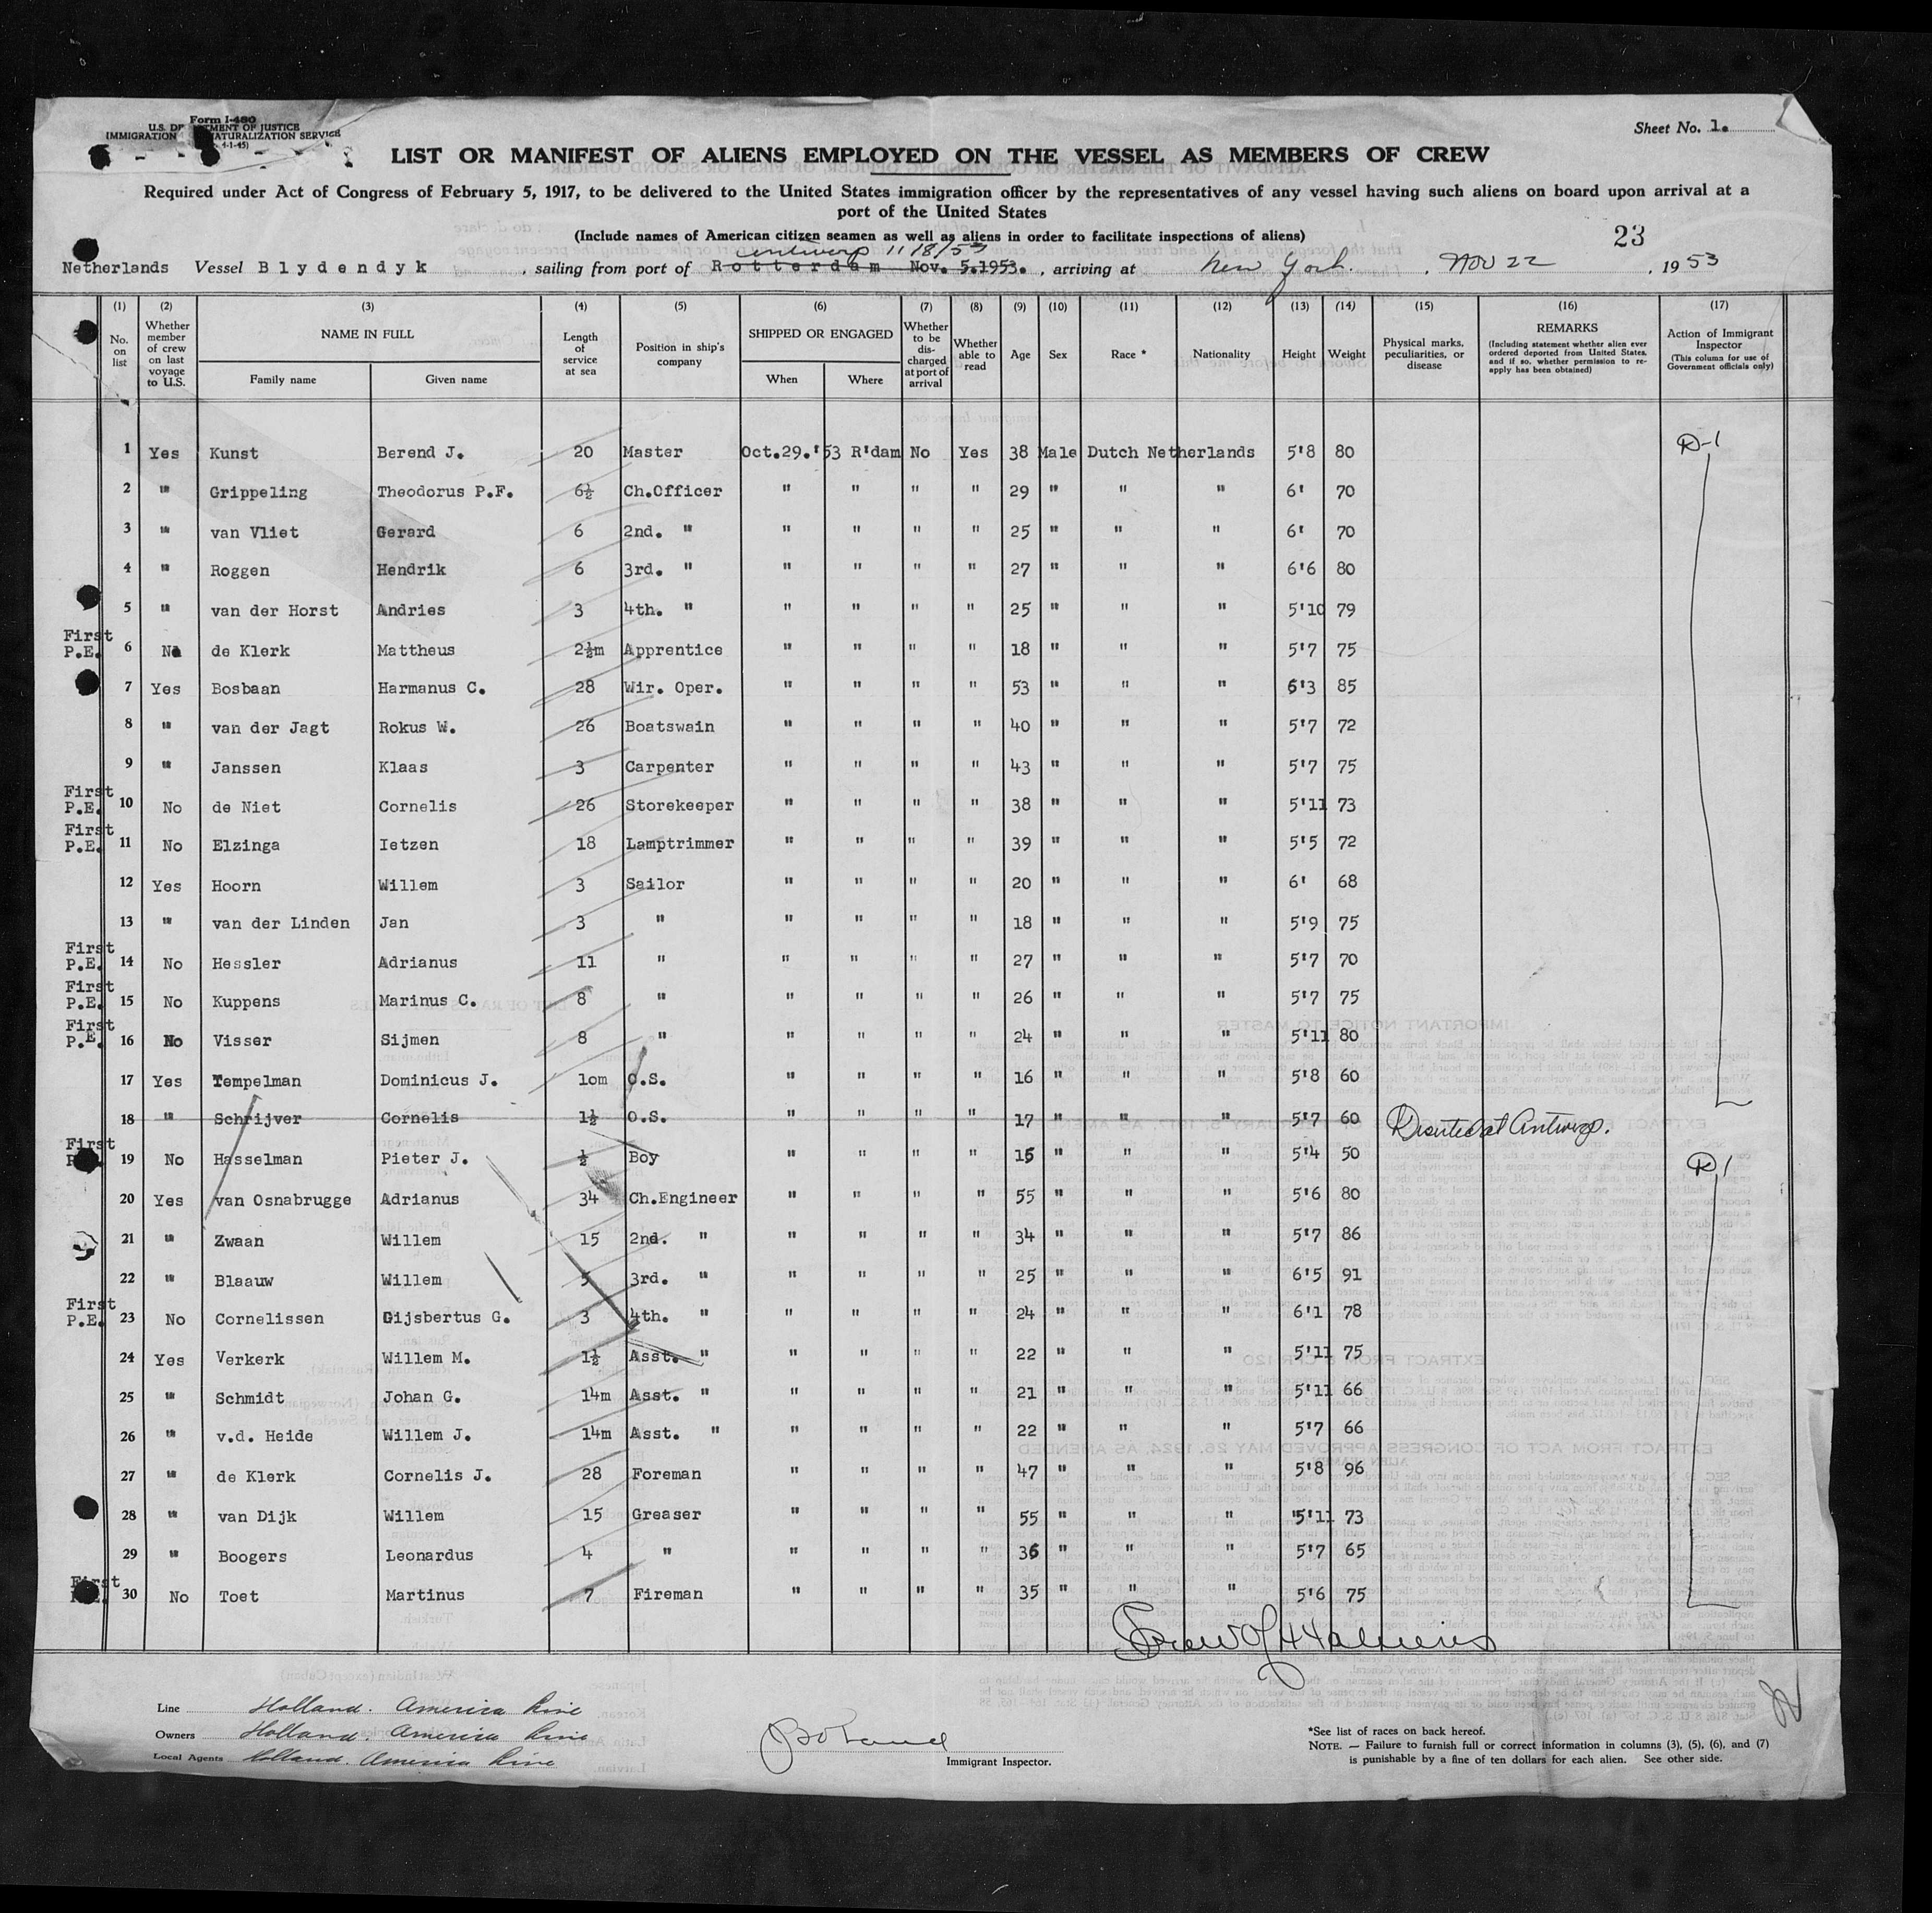 Form I-480
U.S. DEPARTMENT OF JUSTICE
IMMIGRATION NATURALIZATION SERVICE
4-1-45)
Sheet No. 1.
LIST OR MANIFEST OF ALIENS EMPLOYED ON THE VESSEL AS MEMBERS OF CREW
Required under Act of Congress of February 5, 1917, to be delivered to the United States immigration officer by the representatives of any vessel having such aliens on board upon arrival at a
port of the United States
(Include names of American citizen seamen as well as aliens in order to facilitate inspections of aliens)
23
antwerp 11/8/53
Netherlands Vessel Blydendyk, sailing from port of Rotterdam Nov. 5.1953., arriving at New York, NOV 22, 1953
(1) (2) (3) (4) (5) (6) (7) (8) (9) (10) (11) (12) (13) (14) (15) (16) (17)
No. on list
Whether member of crew on last voyage to U.S.
NAME IN FULL
Family name Given name
Length of service at sea
Position in ship's company
SHIPPED OR ENGAGED
When Where
Whether to be discharged at port of arrival
Whether able to read
Age
Sex
Race *
Nationality
Height
Weight
Physical marks, peculiarities, or disease
REMARKS
(Including statement whether alien ever ordered deported from United States, and if so, whether permission to re-apply has been obtained)
Action of Immigrant Inspector
(This column for use of Government officials only)
1 Yes Kunst Berend J. 20 Master Oct.29.'53 R'dam No Yes 38 Male Dutch Netherlands 5'8 80 D-1
2 " Grippeling Theodorus P.F. 6½ Ch.Officer " " " " 29 " " " 6' 70
3 " van Vliet Gerard 6 2nd. " " " " " 25 " " " 6' 70
4 " Roggen Hendrik 6 3rd. " " " " " 27 " " " 6'6 80
5 " van der Horst Andries 3 4th. " " " " " 25 " " " 5'10 79
First P.E. 6 No de Klerk Mattheus 2½m Apprentice " " " " 18 " " " 5'7 75
7 Yes Bosbaan Harmanus C. 28 Wir. Oper. " " " " 53 " " " 6'3 85
8 " van der Jagt Rokus W. 26 Boatswain " " " " 40 " " " 5'7 72
9 " Janssen Klaas 3 Carpenter " " " " 43 " " " 5'7 75
First P.E. 10 No de Niet Cornelis 26 Storekeeper " " " " 38 " " " 5'11 73
First P.E. 11 No Elzinga Ietzen 18 Lamptrimmer " " " " 39 " " " 5'5 72
12 Yes Hoorn Willem 3 Sailor " " " " 20 " " " 6' 68
13 " van der Linden Jan 3 " " " " " 18 " " " 5'9 75
First P.E. 14 No Hessler Adrianus 11 " " " " " 27 " " " 5'7 70
First P.E. 15 No Kuppens Marinus C. 8 " " " " " 26 " " " 5'7 75
First P.E. 16 No Visser Sijmen 8 " " " " " 24 " " " 5'11 80
17 Yes Tempelman Dominicus J. 10m O.S. " " " " 16 " " " 5'8 60
18 " Schrijver Cornelis 1½ O.S. " " " " 17 " " " 5'7 60 Deserted at Antwerp.
First 19 No Hasselman Pieter J. ½ Boy " " " " 15 " " " 5'4 50 D-1
20 Yes van Osnabrugge Adrianus 34 Ch.Engineer " " " " 55 " " " 5'6 80
21 " Zwaan Willem 15 2nd. " " " " " 34 " " " 5'7 86
22 " Blaauw Willem 5 3rd. " " " " " 25 " " " 6'5 91
First P.E. 23 No Cornelissen Gijsbertus G. 3 4th. " " " " " 24 " " " 6'1 78
24 Yes Verkerk Willem M. 1½ Asst. " " " " " 22 " " " 5'11 75
25 " Schmidt Johan G. 14m Asst. " " " " " 21 " " " 5'11 66
26 " v.d. Heide Willem J. 14m Asst. " " " " " 22 " " " 5'7 66
27 " de Klerk Cornelis J. 28 Foreman " " " " 47 " " " 5'8 96
28 " van Dijk Willem 15 Greaser " " " " 55 " " " 5'11 73
29 " Boogers Leonardus 4 " " " " " 36 " " " 5'7 65
First 30 No Toet Martinus 7 Fireman " " " " 35 " " " 5'6 75
Crew of 44 aliens
Line Holland. America Line
Owners Holland. America Line
Local Agents Holland. America Line
Immigrant Inspector.
*See list of races on back hereof.
NOTE. — Failure to furnish full or correct information in columns (3), (5), (6), and (7)
is punishable by a fine of ten dollars for each alien. See other side.